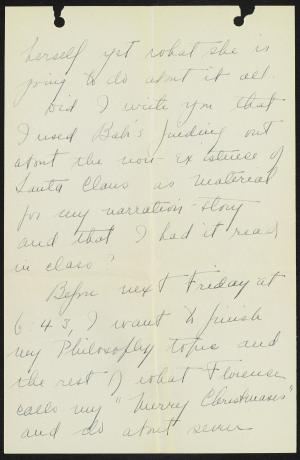 herself yet what she is
going to do about it all.
Did I write you that
I used Bab's finding out
about the non-existense of
Santa Claus as material
for my narration-story
and that I had it read
in class?
Before next Friday at
6:43, I want to finish
my Philosophy topic and
the rest of what Florence
calls my "Merry Christmases"
and do about seven